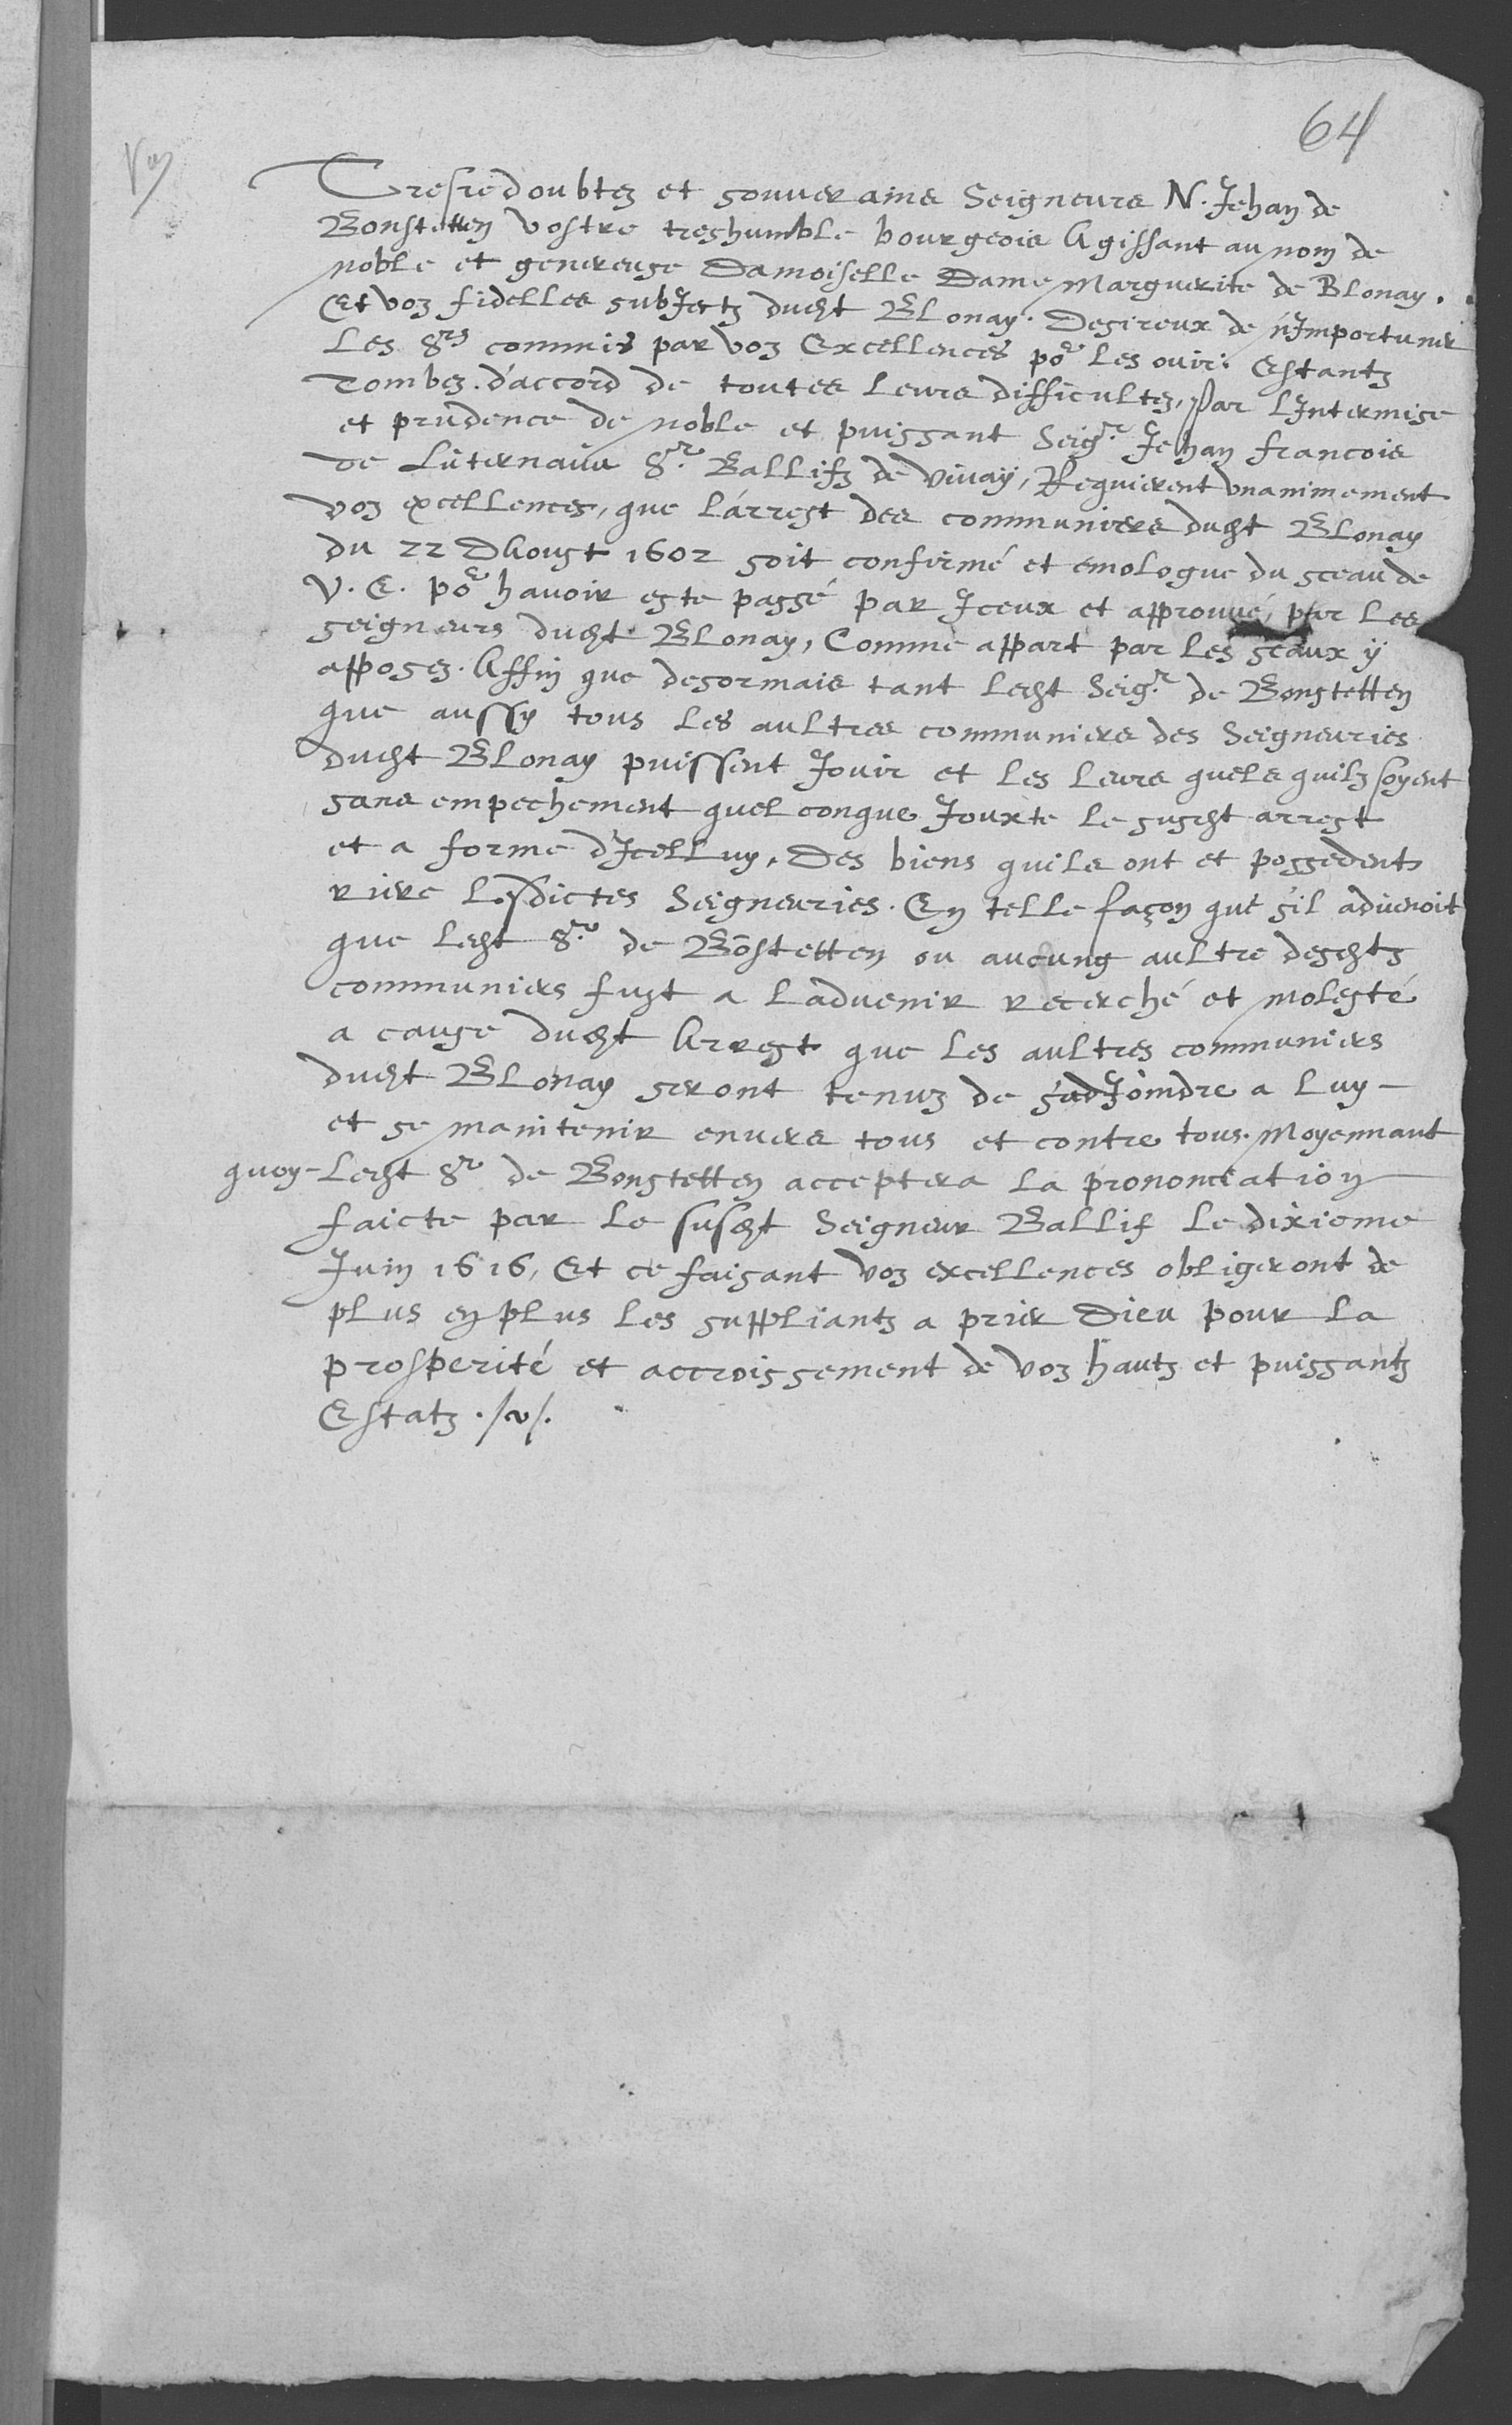 64
Tresredoubtez et souverains Seigneurs N. Jehan de
Bonstetten vostre treshumble bourgeois Agissant au nom de
noble et genereuse Damoiselle Dame Marguerite de Blonay.
Et voz fidelles subiectz dudit Blonay. Desireux de n'Importuner
Les Srs commis par voz Excellences po.r les ouir. Estantz
Tombez d'accord de toutes leurs difficultez, Par l'Intermise
et prudence de noble et puissant Seig.r Jehan francois
de Luternauw S.r Ballifz de Vivay, Requierent unanimement
voz excellences, que l'arrest des communiers dudit Blonay
du 22 D'Aoust 1602 soit confirmé et emologue du sceau de
V. E. po.r havoir este passé par Iceux et approuvé, par les
seigneurs dudit Blonay, Comme appart par les sceaux ÿ
apposez. Affin que desormais tant ledit Seig.r de Bonstetten
que aussy tous les aultres communiers des Seigneuries
dudit Blonay puissent Jouir et les leurs quels quilz soyent
sans empechement quelconque Jouxte le susdit arrest
et a forme d'Icelluy, Des biens quils ont et possedent
riere lesdictes Seigneuries. En telle façon que s'il advenoit
que ledit S.r de Bostetten ou aucung aultre desdits
communiers fust a l'advenir recerché et molesté
a cause dudit Arrest que les aultres communiers
dudit Blonay seront tenuz de s'adjoindre a luy
et se maintenir envers tous et contre tous. Moyennant
quoy ledit Sr de Bonstetten acceptera la prononciation
faicte par le susdit Seigneur Ballif le dixieme
Juin 1616, Et ce faisant voz excellences obligeront de
plus en plus les suppliantz a prier Dieu pour la
prosperité et accroissement de voz hautz et puissantz
Estatz.